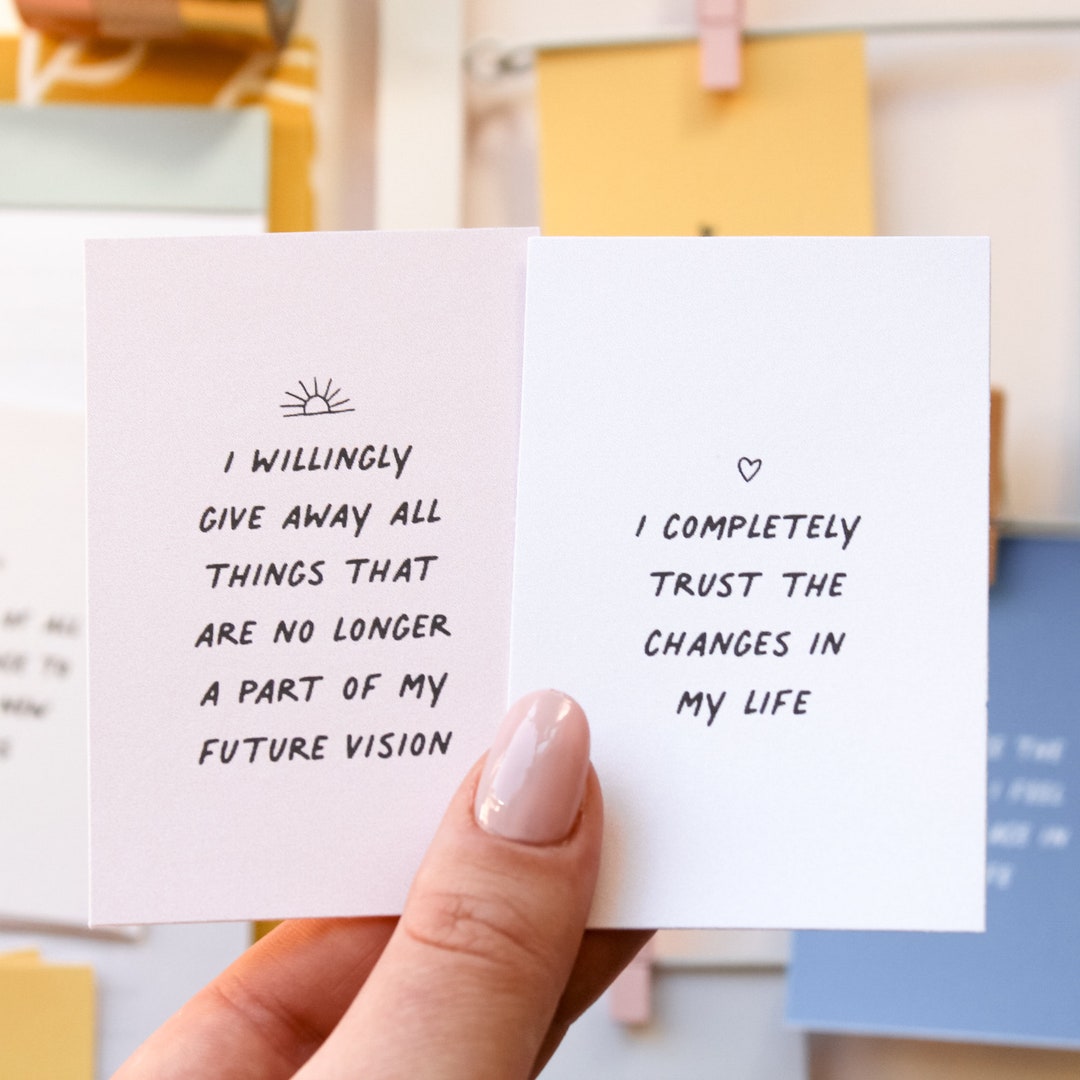 I WILLINGLY
GIVE AWAY ALL
THINGS THAT
ARE NO LONGER
A PART OF MY
FUTURE VISION
I COMPLETELY
TRUST THE
CHANGES IN
MY LIFE
THE
I FEEL
IN